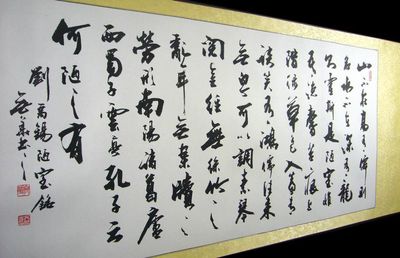 山不在高有仙則
名水不在深有龍
則靈斯是陋室惟
吾德馨苔痕上
階綠草色入簾青
談笑有鴻儒往來
無白丁可以調素琴
閱金經無絲竹之
亂耳無案牘之
勞形南陽諸葛廬
西蜀子雲亭孔子云
何陋之有
劉禹錫陋室銘